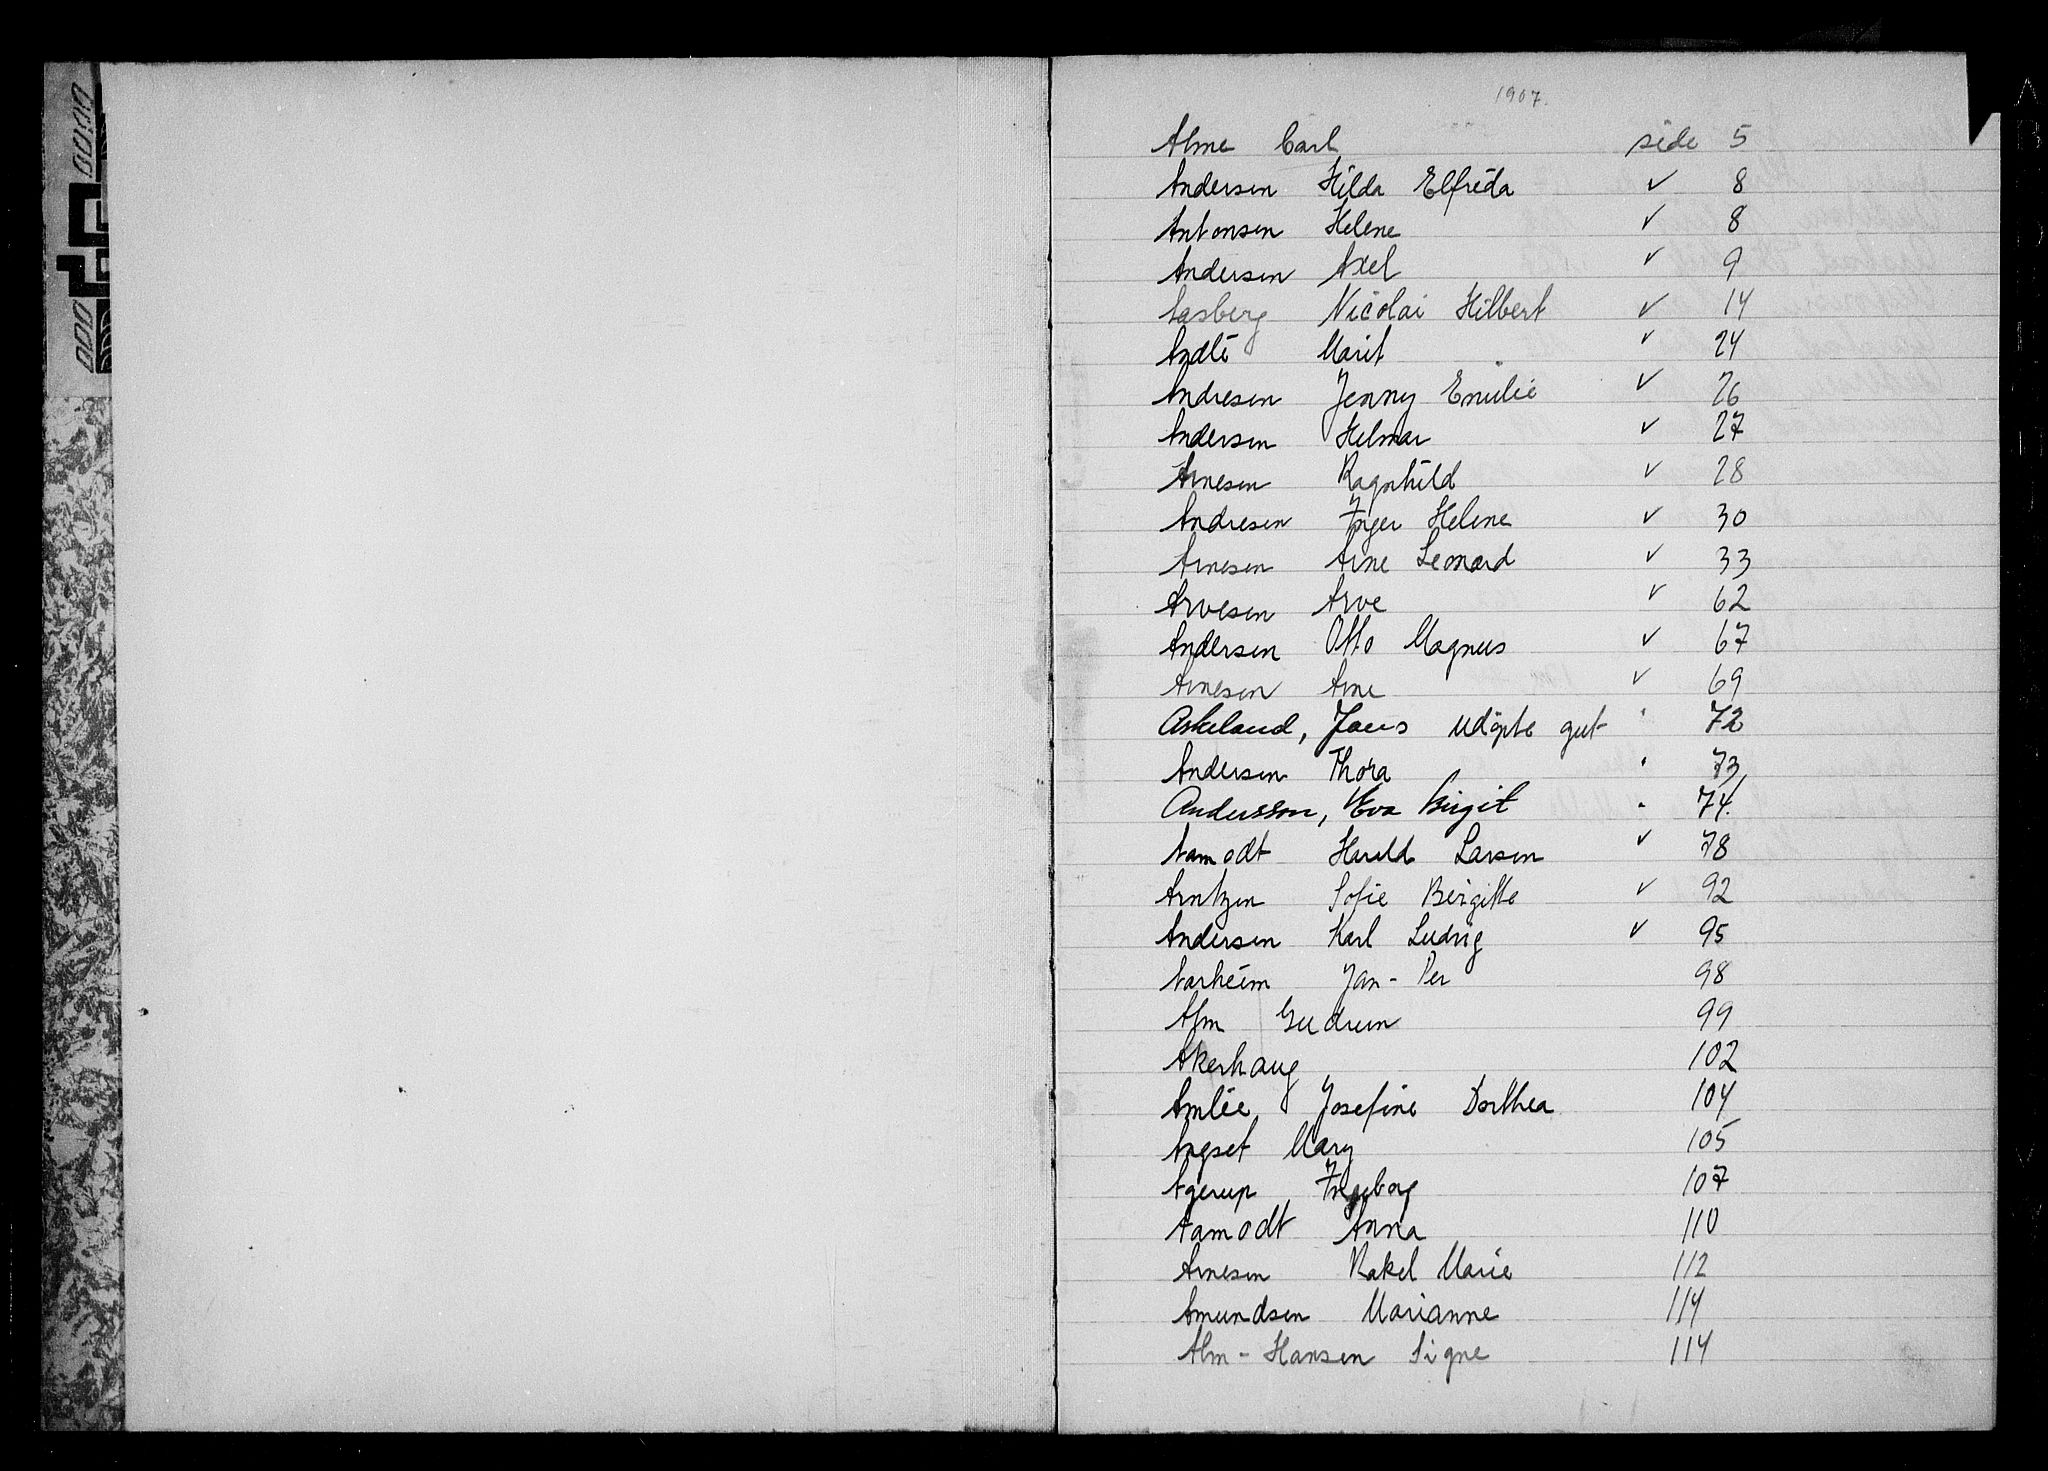 1907.
Alme Carl side 5
Andersen Hilda Elfrida ✓ 8
Antonsen Helene ✓ 8
Andersen Axel ✓ 9
Aasberg Nicolai Hilbert ✓ 14
Andli Marit ✓ 24
Andresen Jenny Emilie ✓ 26
Andersen Helmar ✓ 27
Arnesen Ragnhild ✓ 28
Andresen Inger Helene ✓ 30
Arnesen Arne Leonard ✓ 33
Arvesen Arve ✓ 62
Andersen Otto Magnus ✓ 67
Arnesen Arne ✓ 69
Askeland, Jens udöpte gut " 72
Andersen Thora " 73
Andersson, Eva Birgit " 74.
Aamodt Harald Larsen ✓ 78
Arntzen Sofie Birgitte ✓ 92
Andersen Karl Ludvig ✓ 95
Aarheim Jan - Per 98
Alm Gudrun 99
Akerhaug 102
Amlie, Josefine Dorthea 104
Angset Mary 105
Agerup Ingeborg 107
Aamodt Anna 110
Arnesen Rakel Marie 112
Amundsen Marianne 114
Alm - Hansen Signe 114